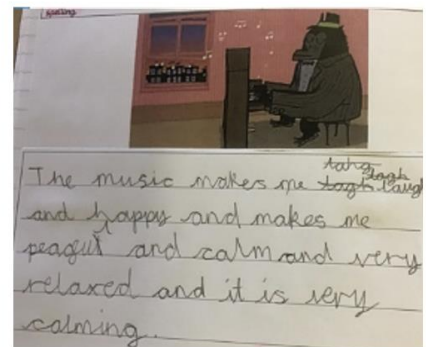 Spelling
The music makes me laugh
and happy and makes me
peagut and calm and very
relaxed and it is very
calming.